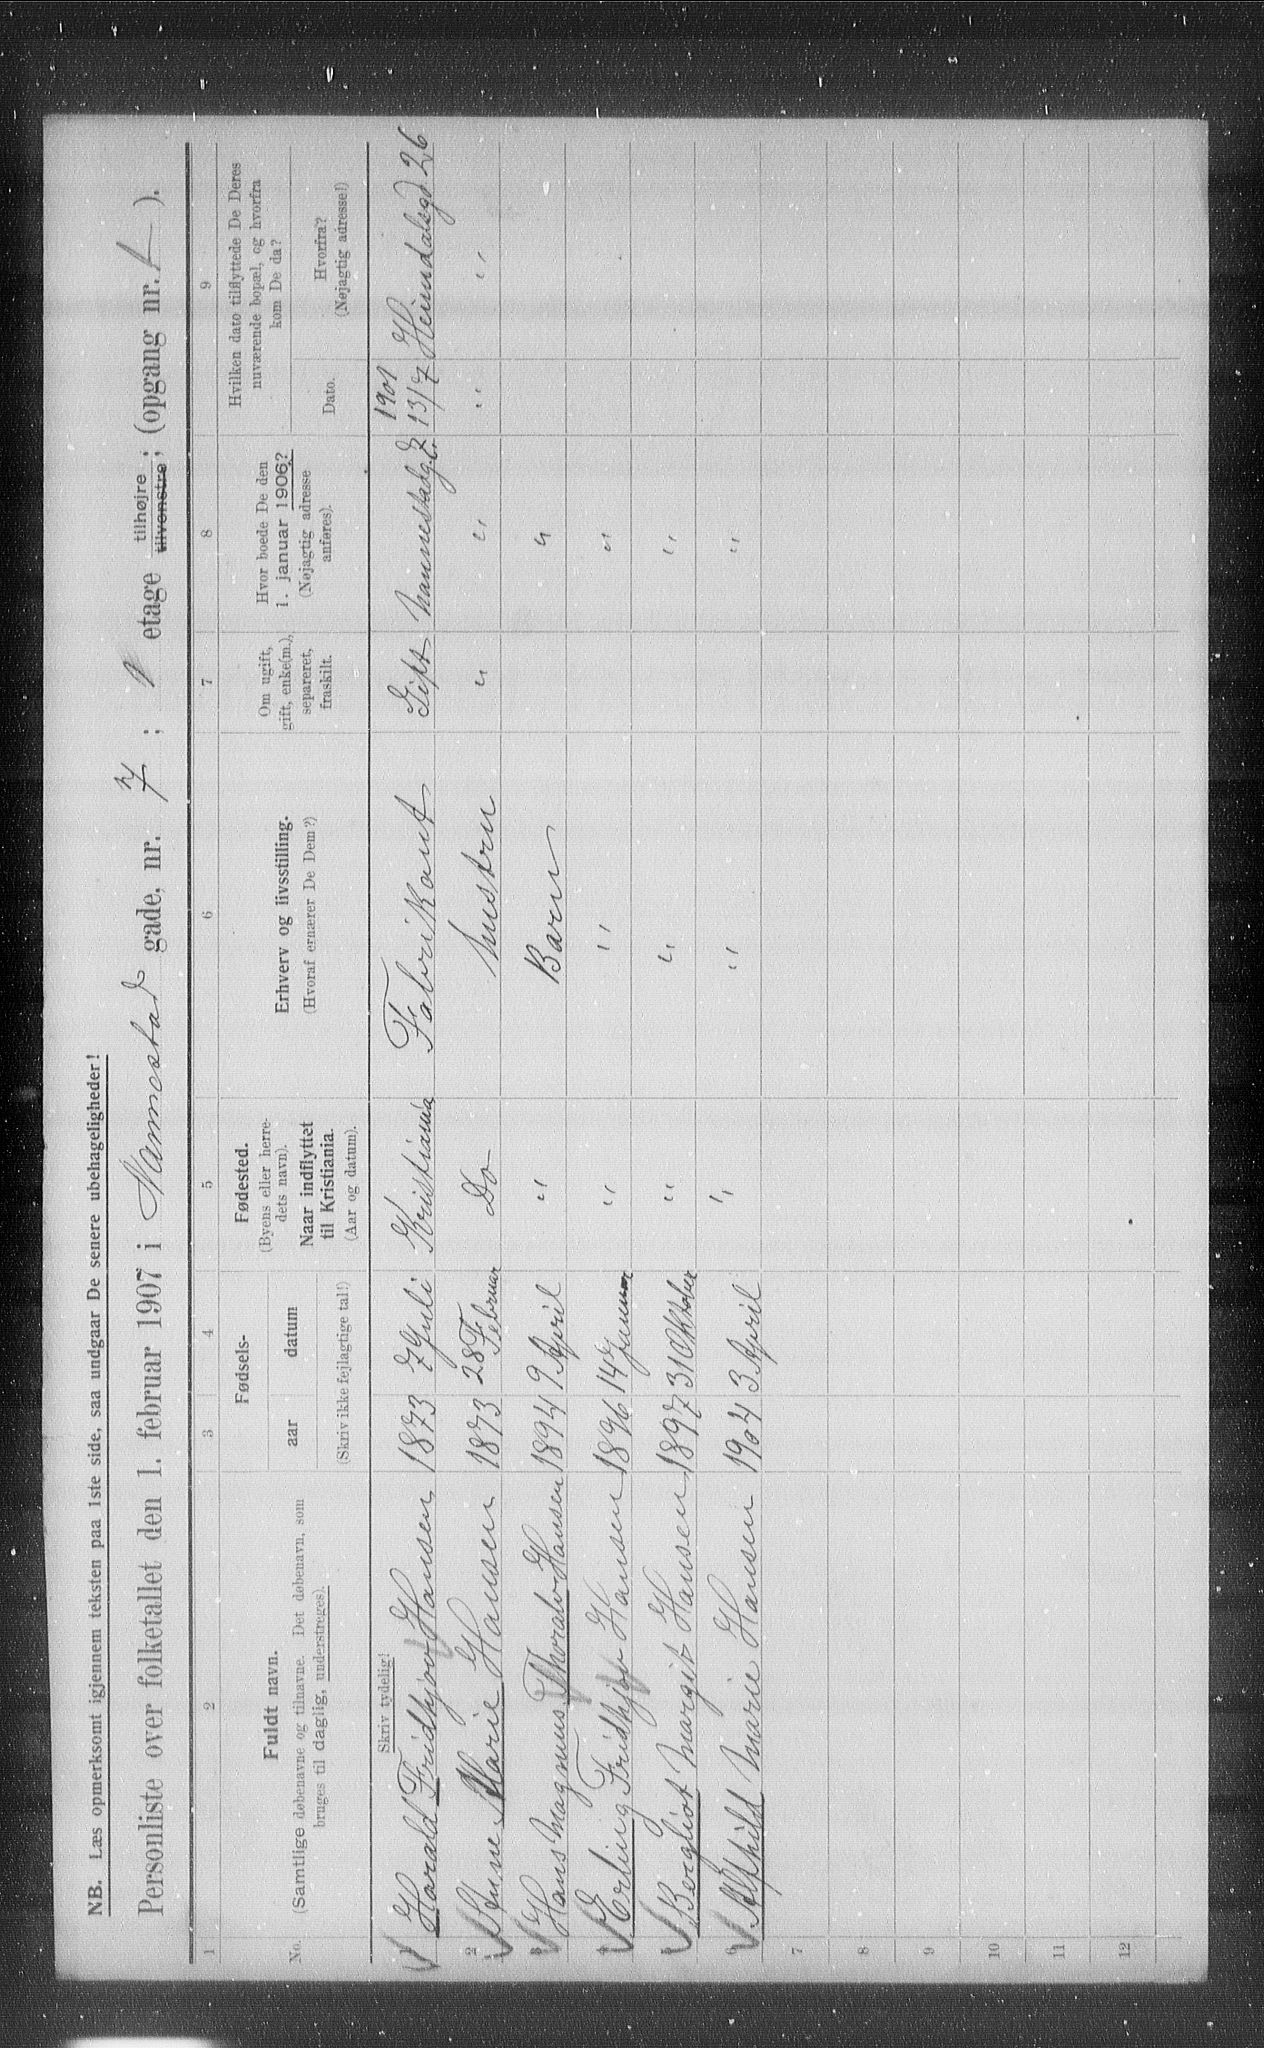 NB. Læs opmerksomt igjennem teksten paa 1ste side, saa undgaar De senere ubehageligheder!
Personliste over folketallet den 1. februar 1907 i Mannestad gade, nr. 7; 1 etage tilhøjre tilvenstre; (opgang nr. 1).
1 2 3 4 5 6 7 8 9
No.
Fuldt navn.
(Samtlige døbenavne og tilnavne. Det døbenavn, som
bruges til daglig, understreges).
Fødsels-
aar datum
(Skriv ikke fejlagtige tal!)
Fødested.
(Byens eller herre-
dets navn).
Naar indflyttet
til Kristiania.
(Aar og datum).
Erhverv og livsstilling.
(Hvoraf ernærer De Dem?)
Om ugift,
gift, enke(m.),
separeret,
fraskilt.
Hvor boede De den
1. januar 1906?
(Nøjagtig adresse
anføres).
Hvilken dato tilflyttede De Deres
nuværende bopæl, og hvorfra
kom De da?
Dato.
Hvorfra?
(Nøjagtig adresse!)
Skriv tydelig!
1 Harald Fridhjov Hansen 1873 7 Juli Kristiania Fabrikant Gift Mannestadg. 7 1901 13/7 Heimdalsgd 26
2 Anne Marie Hansen 1873 28 Februar Do hustru " " " "
3 Hans Magnus Thoralv Hansen 1894 9 April " Barn "
4 Erling Fridhjov Hansen 1896 14 Januar " " "
5 Bergliot Margit Hansen 1897 31 Oktober " " "
6 Alfhild Marie Hansen 1904 3 April " " "
7
8
9
10
11
12